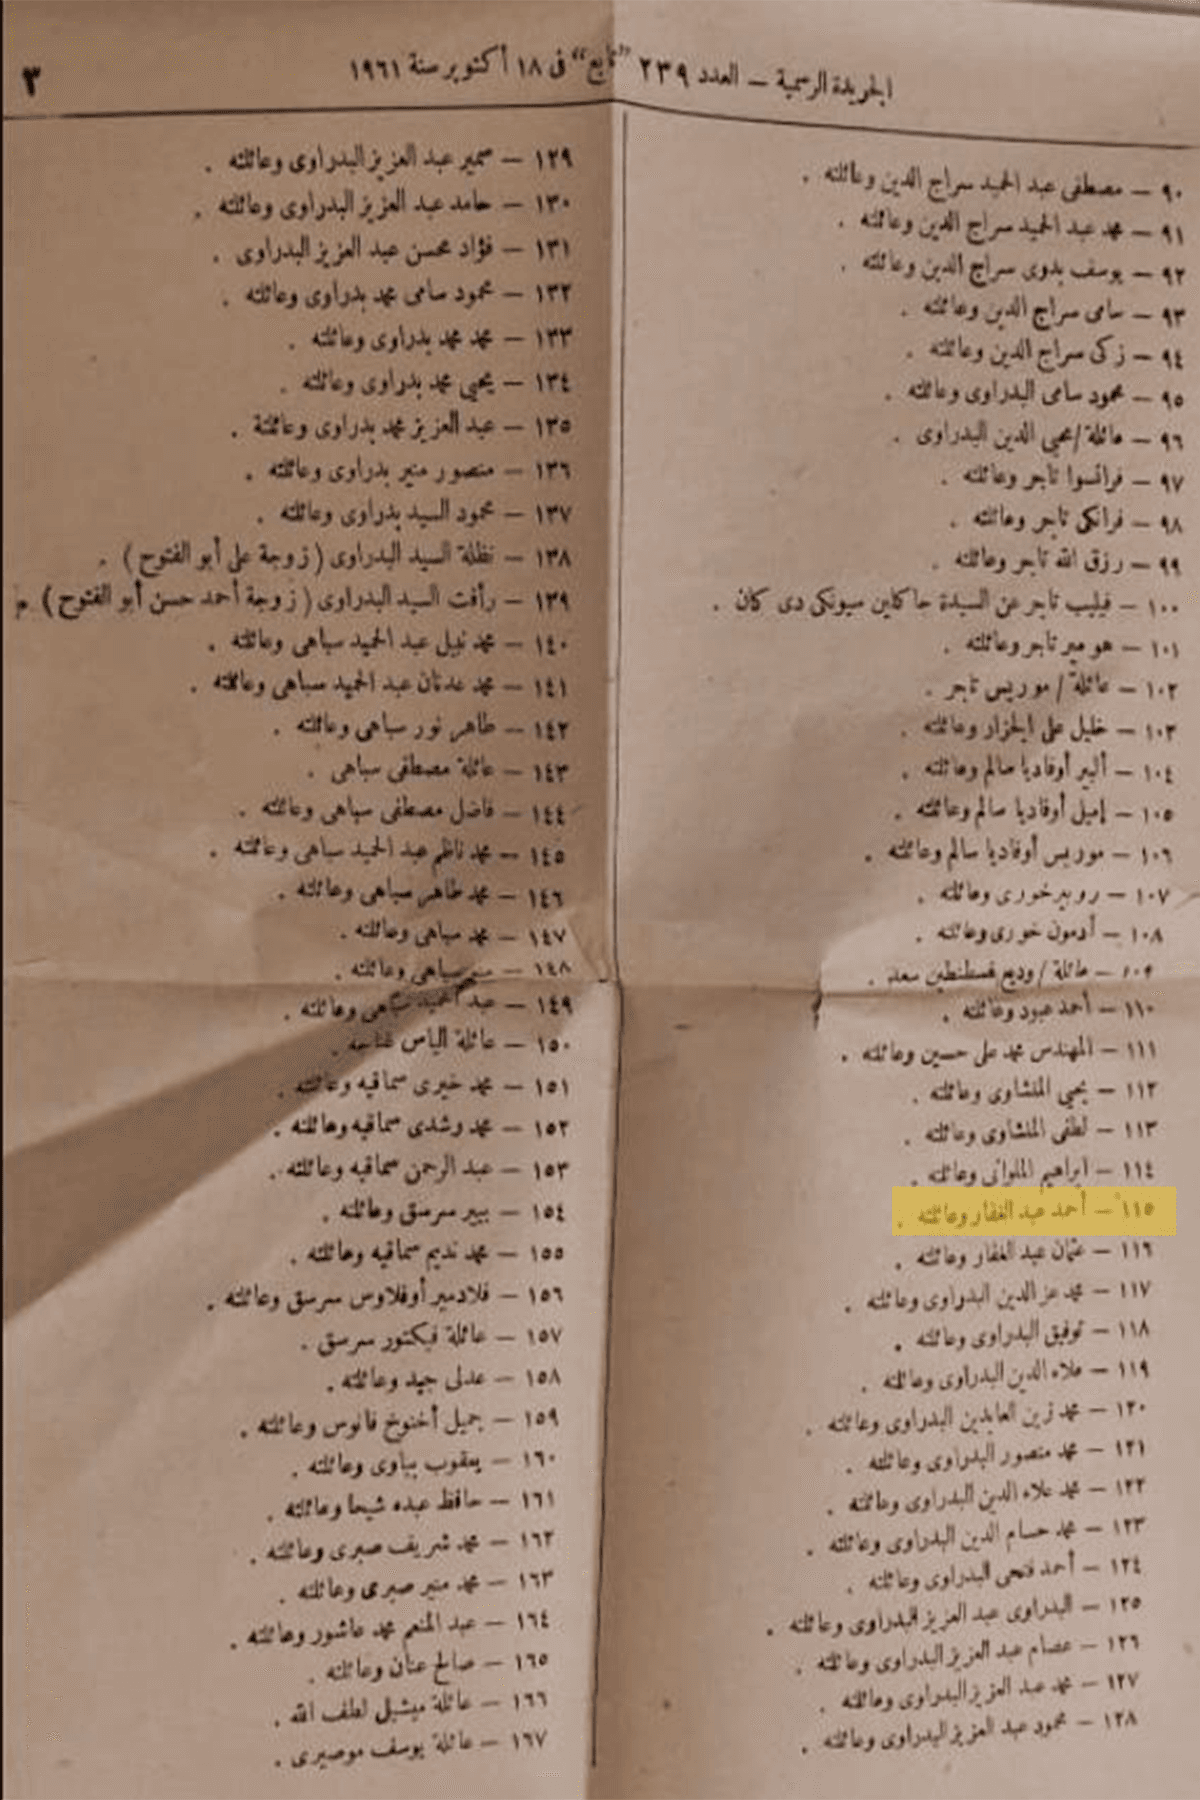 الجريدة الرسمية – العدد ٢٣٩ "تابع" فى ١٨ أكتوبر سنة ١٩٦١
٣
٩٠ – مصطفى عبد الحميد سراج الدين وعائلته .
٩١ – محمد عبد الحميد سراج الدين وعائلته .
٩٢ – يوسف بدوى سراج الدين وعائلته .
٩٣ – سامى سراج الدين وعائلته .
٩٤ – زكى سراج الدين وعائلته .
٩٥ – محمود سامى البدراوى وعائلته .
٩٦ – عائلة / محيى الدين البدراوى .
٩٧ – فرانسوا تاجر وعائلته .
٩٨ – فرانكى تاجر وعائلته .
٩٩ – رزق الله تاجر وعائلته .
١٠٠ – فيليب تاجر عن السيدة جاكلين سيونكى دى كان .
١٠١ – هو مير تاجر وعائلته .
١٠٢ – عائلة / موريس تاجر .
١٠٣ – خليل على الجزار وعائلته .
١٠٤ – ألبير أوفاديا سالم وعائلته .
١٠٥ – إميل أوفاديا سالم وعائلته .
١٠٦ – موريس أوفاديا سالم وعائلته .
١٠٧ – روبير خورى وعائلته .
١٠٨ – أدمون خورى وعائلته .
١٠٩ – عائلة / وديع قسطنطين سعد .
١١٠ – أحمد عبود وعائلته .
١١١ – المهندس محمد على حسين وعائلته .
١١٢ – يحيي المنشاوى وعائلته .
١١٣ – لطفى المنشاوى وعائلته .
١١٤ – ابراهيم الملوانى وعائلته .
١١٥ – أحمد عبد الغفار وعائلته .
١١٦ – عثمان عبد الغفار وعائلته .
١١٧ – محمد عز الدين البدراوى وعائلته .
١١٨ – توفيق البدراوى وعائلته .
١١٩ – علاء الدين البدراوى وعائلته .
١٢٠ – محمد زين العابدين البدراوى وعائلته .
١٢١ – محمد منصور البدراوى وعائلته .
١٢٢ – محمد علاء الدين البدراوى وعائلته .
١٢٣ – محمد حسام الدين البدراوى وعائلته .
١٢٤ – أحمد فتحى البدراوى وعائلته .
١٢٥ – البدراوى عبد العزيز البدراوى وعائلته .
١٢٦ – عصام عبد العزيز البدراوى وعائلته .
١٢٧ – محمد عبد العزيز البدراوى وعائلته .
١٢٨ – محمود عبد العزيز البدراوى وعائلته .
١٢٩ – سمير عبد العزيز البدراوى وعائلته .
١٣٠ – حامد عبد العزيز البدراوى وعائلته .
١٣١ – فؤاد محسن عبد العزيز البدراوى .
١٣٢ – محمود سامى محمد بدراوى وعائلته .
١٣٣ – محمد محمد بدراوى وعائلته .
١٣٤ – يحيي محمد بدراوى وعائلته .
١٣٥ – عبد العزيز محمد بدراوى وعائلتة .
١٣٦ – منصور منير بدراوى وعائلته .
١٣٧ – محمود السيد بدراوى وعائلته .
١٣٨ – نظلة السيد البدراوى ( زوجة على أبو الفتوح ) .
١٣٩ – رأفت السيد البدراوى ( زوجة أحمد حسن أبو الفتوح )
١٤٠ – محمد نبيل عبد الحميد سباهى وعائلته .
١٤١ – محمد عدنان عبد الحميد سباهى وعائلته .
١٤٢ – طاهر نور سباهى وعائلته .
١٤٣ – عائلة مصطفى سباهى .
١٤٤ – فاضل مصطفى سباهى وعائلته .
١٤٥ – محمد ناظم عبد الحميد سباهى وعائلته .
١٤٦ – محمد طاهر سباهى وعائلته .
١٤٧ – محمد سباهى وعائلته .
١٤٨ – سباهى وعائلته .
١٤٩ – عبد الحميد سباهى وعائلته .
١٥٠ – عائلة الياس .
١٥١ – محمد خيرى سماقيه وعائلته .
١٥٢ – محمد رشدى سماقيه وعائلته .
١٥٣ – عبد الرحمن سماقيه وعائلته .
١٥٤ – بيير سرسق وعائلته .
١٥٥ – محمد نديم سماقيه وعائلته .
١٥٦ – فلادمير أوفلاوس سرسق وعائلته .
١٥٧ – عائلة فيكتور سرسق .
١٥٨ – عدلى جيد وعائلته .
١٥٩ – جميل أخنوخ فانوس وعائلته .
١٦٠ – يعقوب بباوى وعائلته .
١٦١ – حافظ عبده شيحا وعائلته .
١٦٢ – محمد شريف صبرى وعائلته .
١٦٣ – محمد منير صبرى وعائلته .
١٦٤ – عبد المنعم محمد عاشور وعائلته .
١٦٥ – صالح عنان وعائلته .
١٦٦ – عائلة ميشيل لطف الله .
١٦٧ – عائلة يوسف موصيرى .